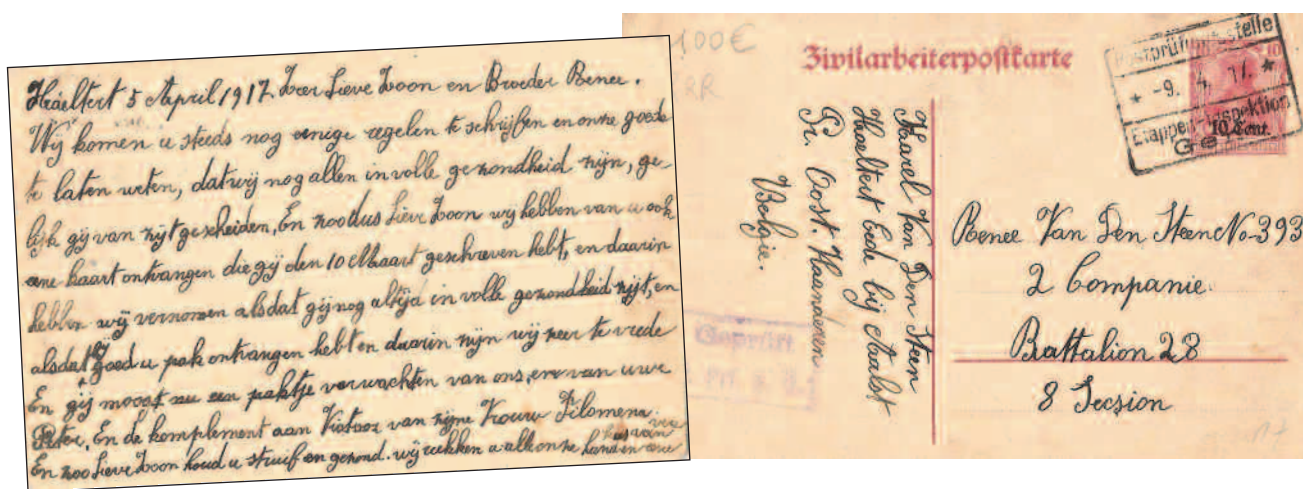 Haeltert 5 April 1917 Zeer Lieve Zoon en Broeder Renee.
Wij komen u steeds nog eenige regelen te schrijfen en onze goede
te laten weten, dat wij nog allen in volle gezondheid zijn, ge-
lijk gij van zijt gescheiden, En zoodus Lieve Zoon wij hebben van u ook
eene kaart ontvangen die gij den 10 Maart geschreven hebt, en daarin
hebben wij vernomen alsdat gij nog altijd in volle gezondheid zijt, en
alsdat gij goed u pak ontvangen hebt en daarin zijn wij zeer te vrede
En gij moogt nu een paktje verwachten van ons, en van uwe
Peter. En de komplement aan van zijne Vrouw Filomena.
En zoo Lieve Zoon houd u struif en gezond. wij rekken u alle onze handen
kus van
100€
RR
Zivilarbeiterpostkarte
Postprüfungsstelle
* -9. 4. 17. *
Etappen-Inspektion
Ge
10
10 Cent.
Karel Van Den Steen
Haeltert Ede bij Aalst
Pr. Oost. Vlaanderen
Belgie.
Geprüft
Renee Van Den Steen No-393
2 Companie.
Battalion 28
8 Secsion
17